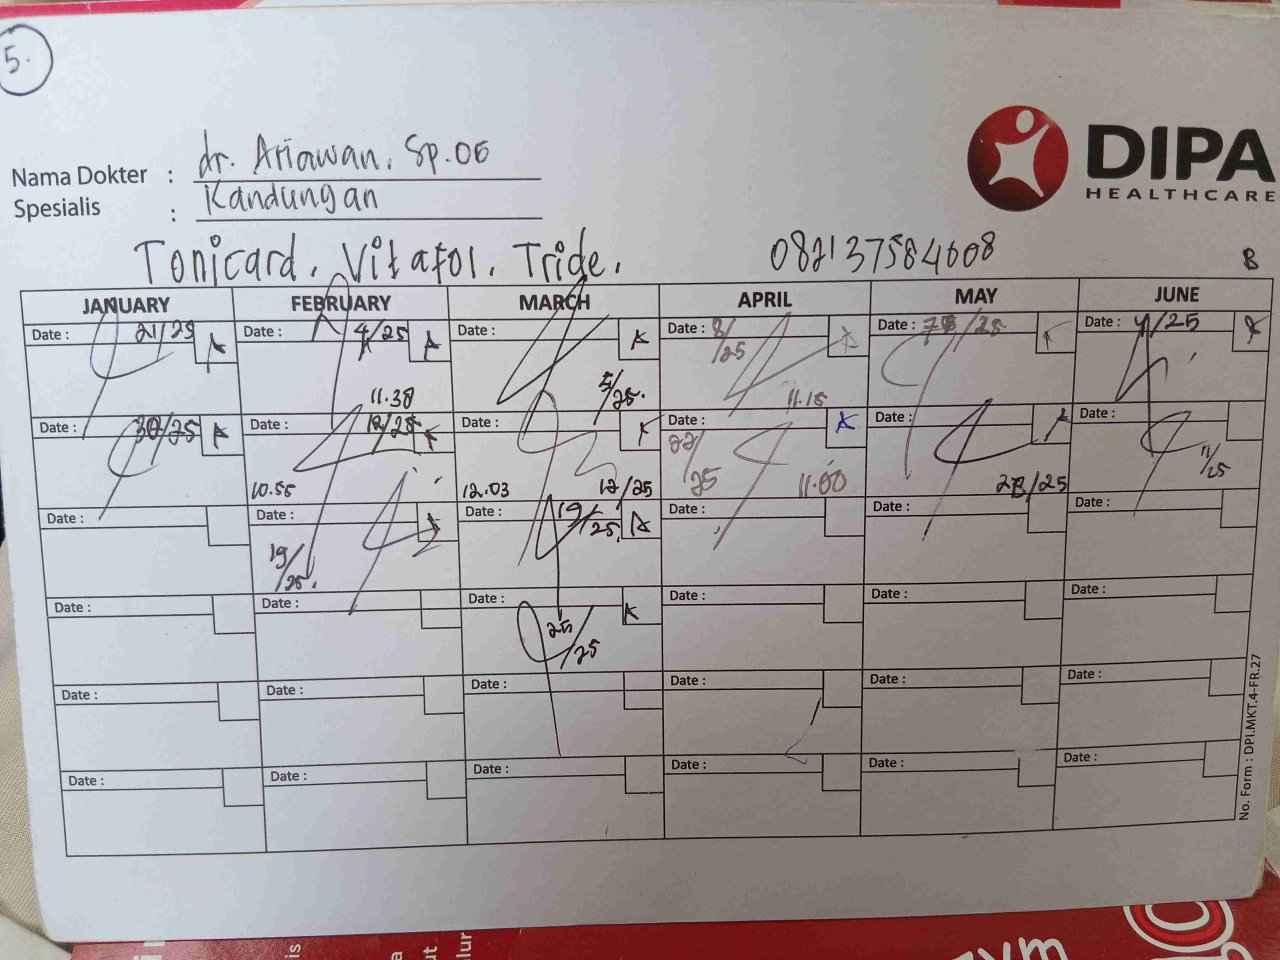 5.
DIPA
HEALTHCARE
Nama Dokter : dr. Ariawan. Sp.OG
Spesialis : Kandungan
Tonicard. Vitafol. Tride. 082137584608
B
JANUARY FEBRUARY MARCH APRIL MAY JUNE
Date : 21/25 Date : 4/25 Date : Date : 8/25 Date : /25 Date : 4/25
11.38 5/25. 11.15
Date : 30/25 Date : 12/25 Date : Date : 22/25 Date : Date :
10.55 12.03 12/25 11.00 28/25 11/25
Date : Date : Date : 19/25. Date : Date : Date :
19/25.
Date : Date : Date : Date : Date : Date :
25/25
Date : Date : Date : Date : Date : Date :
Date : Date : Date : Date : Date : Date :
No. Form : DPI.MKT.4-FR.27
is
a
ut
lur
zym